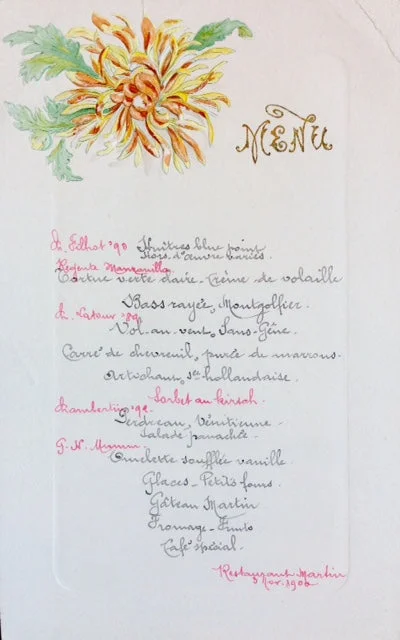 MENU
Ch. Filhot '90 Huîtres blue point
Hors d'œuvre variés.
Regente Manzanilla
Tortue verte claire - Crème de volaille
Bass rayée, Montgolfier.
Ch. Latour '89
Vol. au vent, Sans-Gêne.
Carré de chevreuil, purée de marrons.
Artichaux, sce hollandaise.
Sorbet au kirsch.
Chambertin '92
Perdreau, Vénitienne.
Salade panachée.
G.H. Mumm.
Omelette soufflée vanille.
Glaces - Petits fours.
Gâteau Martin
Fromage - Fruits
Café spécial.
Restaurant Martin
Nov. 1906